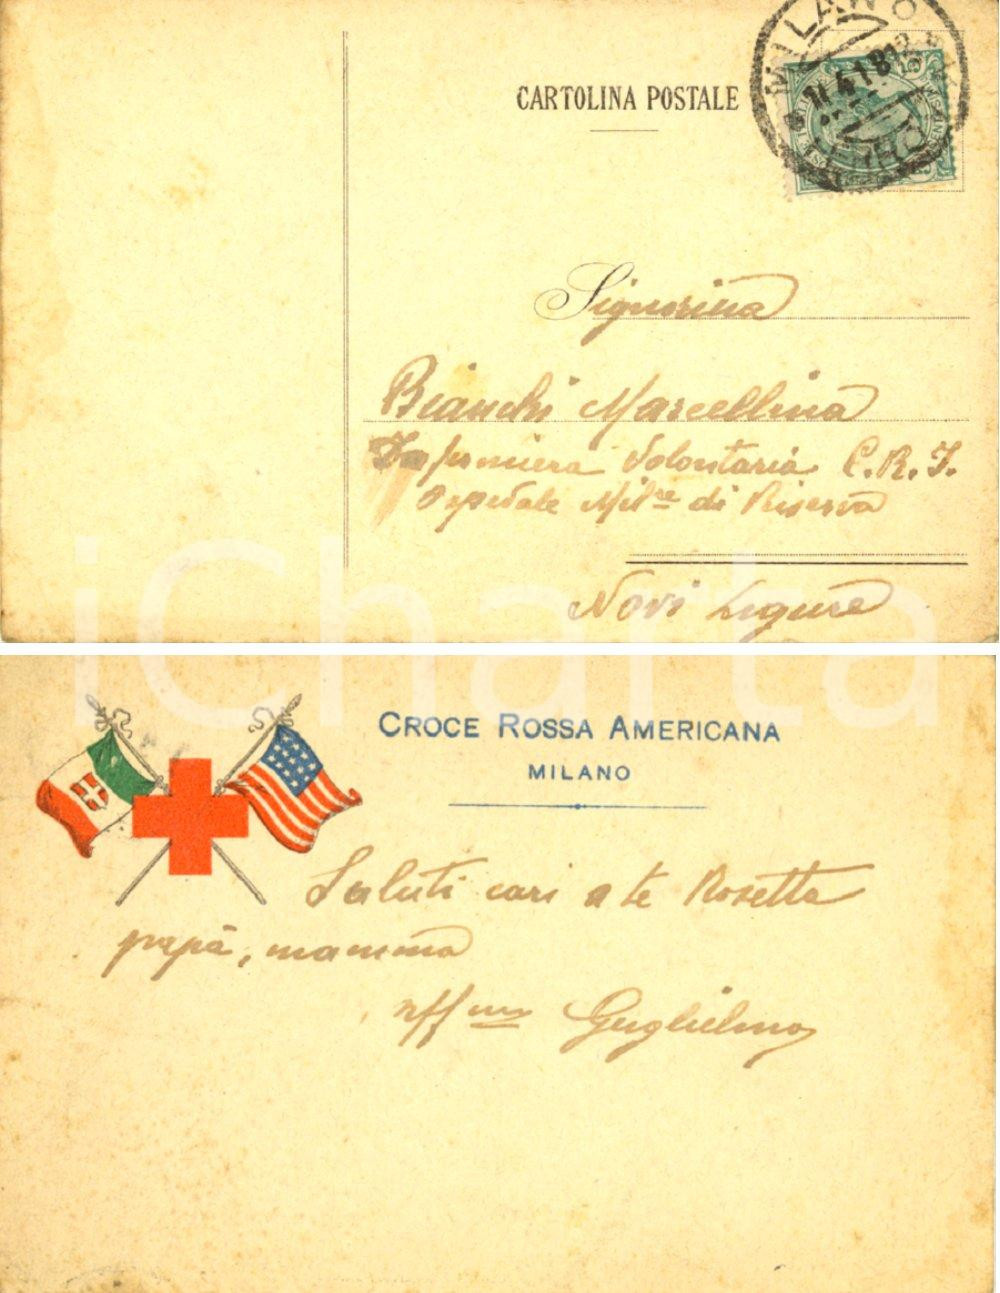 MILANO
11.4.18
CARTOLINA POSTALE
Signorina
Bianchi Marcellina
Infermiera Volontaria C.R.I.
Ospedale Milre di Riserva
Novi Ligure
iCharta
CROCE ROSSA AMERICANA
MILANO
Saluti cari a te Rosetta
papà, mamma
aff mo Guglielmo